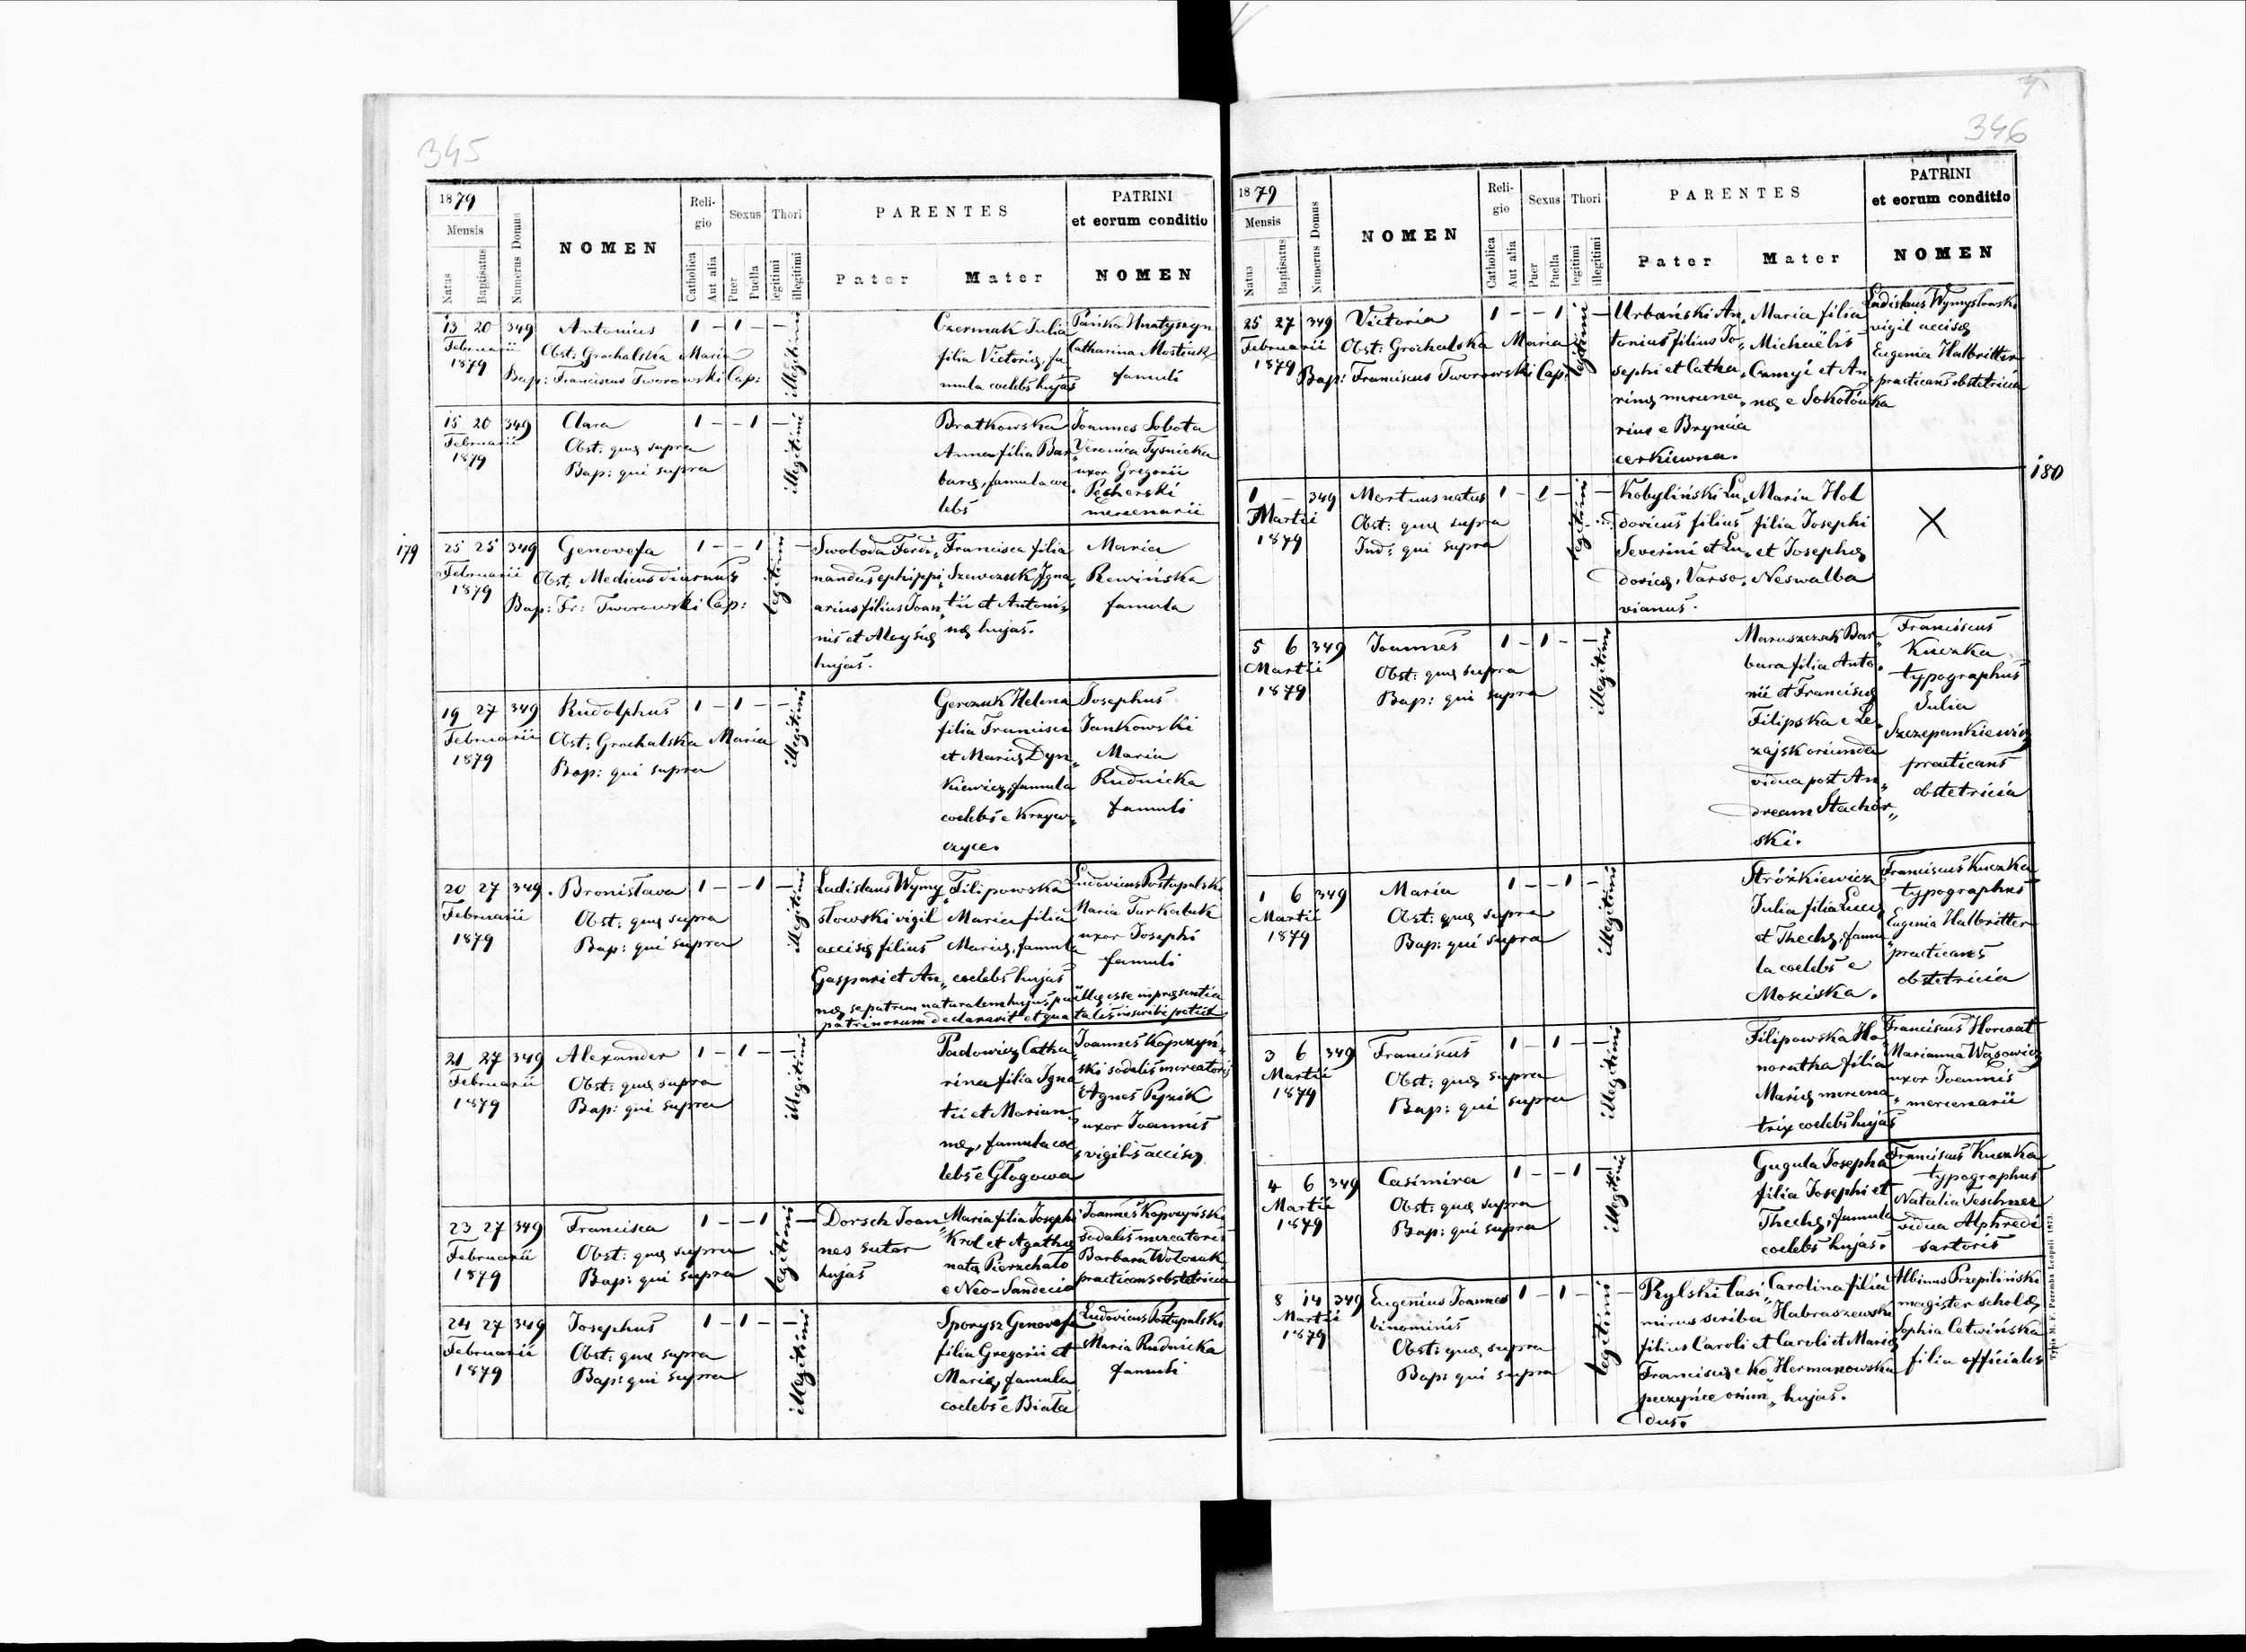 345
1879
Mensis
Natus
Baptisatus
Numerus Domus
NOMEN
Religio
Catholica
Aut alia
Sexus
Puer
Puella
Thori
legitimi
illegitimi
PARENTES
Pater
Mater
PATRINI
et eorum conditio
NOMEN
13 20 349 Antonius 1 – 1 – –
Februarii
1879
Obst: Grochalska Maria
Bap: Franciscus Tworowski Cap:
illegitimi
Czermak Julia
filia Victoriæ, fa
mula coelebs hujas
Catharina
famuli
15 20 349 Clara 1 – – 1 –
Februarii
1879
Obst: quæ supra
Bap: qui supra
illegitimi
Bratkowska
Anna filia Bar„
baræ, famula coe„
lebs
Joannes Sobota
Veronica Tysnicka
uxor Gregorii
Pecherski
mercenarii
179
25 25 349 Genovefa 1 – – 1 –
Februarii
1879
Obst: Medicus diurnus
Bap: Fr: Tworowski Cap:
legitimi
Swoboda Ferdi„
nandus ephippi„
arius filius Joan„
nis et Aloysiæ
hujas.
Francisca filia
Szewczuk Igna„
tii et Antoni„
næ hujas.
Maria
Rewińska
famula
19 27 349 Rudolphus 1 – 1 – –
Februarii
1879
Obst: Grochalska Maria
Bap: qui supra
illegitimi
Gerczuk Helena
filia Francisci
et Mariæ Dyn„
kiewicz, famula
coelebs e Krzyw„
czyce.
Josephus
Jankowski
Maria
Rudnicka
famuli
20 27 349 Bronisława 1 – – 1 –
Februarii
1879
Obst: quæ supra
Bap: qui supra
illegitimi
Ladislaus Wymy„
słowski vigil
accisæ filius
Gaspari et An„
Filipowska
Maria filia
Mariæ, famula
coelebs hujas
næ se patrem naturalem hujus puellæ esse in præsentia
patrinorum declaravit et qua talis inscribi petiit
Ludovicus Postupalski
Maria Turkaluk
uxor Josephi
famuli
21 27 349 Alexander 1 – 1 – –
Februarii
1879
Obst: quæ supra
Bap: qui supra
illegitimi
Padowicz Catha„
rina filia Igna
tii et Marian„
næ, famula coe
lebs e Głogowa
Joannes Kopczyń„
ski sodalis mercatoris
Agnes
uxor Joannis
vigilis accisæ
23 27 349 Francisca 1 – – 1 –
Februarii
1879
Obst: quæ supra
Bap: qui supra
legitimi
Dorsch Joan„
nes sutor
hujas
Maria filia Josephi
Krol et Agathæ
nata Pierzchało
e Neo-Sandecia
Joannes Kopczyński
sodalis mercatoris
Barbara Wołoczuk
practicans obstetricia
24 27 349 Josephus 1 – 1 – –
Februarii
1879
Obst: quæ supra
Bap: qui supra
illegitimi
Sporysz Genovefa
filia Gregorii et
Mariæ, famula
coelebs e Biała
Ludovicus Postupalski
Maria Rudnicka
famuli
346
1879
Mensis
Natus
Baptisatus
Numerus Domus
NOMEN
Religio
Catholica
Aut alia
Sexus
Puer
Puella
Thori
legitimi
illegitimi
PARENTES
Pater
Mater
PATRINI
et eorum conditio
NOMEN
25 27 349 Victoria 1 – – 1 –
Februarii
1879
Obst: Grochalska Maria
Bap: Franciscus Tworowski Cap:
legitimi
Urbański An„
tonius filius Jo„
sephi et Catha„
rinæ mercena„
rius e Bryncia
cerkiewna.
Maria filia
Michaëlis
et An„
næ e Sokołówka
Ladislaus Wymysłowski
vigil accisæ
Eugenia Halbritter
practicans obstetricia
180
1 – 349 Mortuus natus 1 – 1 – –
Martii
1879
Obst: quæ supra
Ind: qui supra
legitimi
Kobyliński Lu„
dovicus filius
Severini et Lu„
dovicæ, Varso„
vianus.
Maria Hol
filia Josephi
et Josephæ
Neswalba
X
5 6 349 Joannes 1 – 1 – –
Martii
1879
Obst: quæ supra
Bap: qui supra
illegitimi
Maruszczak Bar„
bara filia Anto„
nii et Franciscæ
Filipska e Le„
zajsk oriunda
vidua post An„
dream Stachór„
ski.
Franciscus
Kuczka
typographus
Julia
Szczepankiewicz
practicans
obstetricia
1 6 349 Maria 1 – – 1 –
Martii
1879
Obst: quæ supra
Bap: qui supra
illegitimi
Stróżkiewicz
Julia filia Lucæ
et Theclæ, famu
la coelebs e
Mosciska.
Franciscus Kuczka
typographus
Eugenia Halbritter
practicans
obstetricia
3 6 349 Franciscus 1 – 1 – –
Martii
1879
Obst: quæ supra
Bap: qui supra
illegitimi
Filipowska Ho„
noratha filia
Mariæ mercena„
trix coelebs hujas
Franciscus Horwat
Marianna Wąsowicz
uxor Joannis
mercenarii
4 6 349 Casimira 1 – – 1 –
Martii
1879
Obst: quæ supra
Bap: qui supra
illegitimi
Gugula Josepha
filia Josephi et
Theclæ, famula
coelebs hujas.
Franciscus Kuczka
typographus
Natalia Teschner
vidua Alphredi
sartoris
8 14 349 Eugenius Joannes 1 – 1 – –
Martii
1879
binominis
Obst: quæ supra
Bap: qui supra
legitimi
Rylski Casi„
mirus scriba
filius Caroli et
Franciscæ e Ko„
peczyńce oriun„
dus.
Carolina filia
Habraszewski
Caroli et Mariæ
Hermanowska
hujas.
Albinus Przepiliński
magister scholæ
Sophia Cetwińska
filia officialis
Typis M. F. Poremba Leopoli 1873.